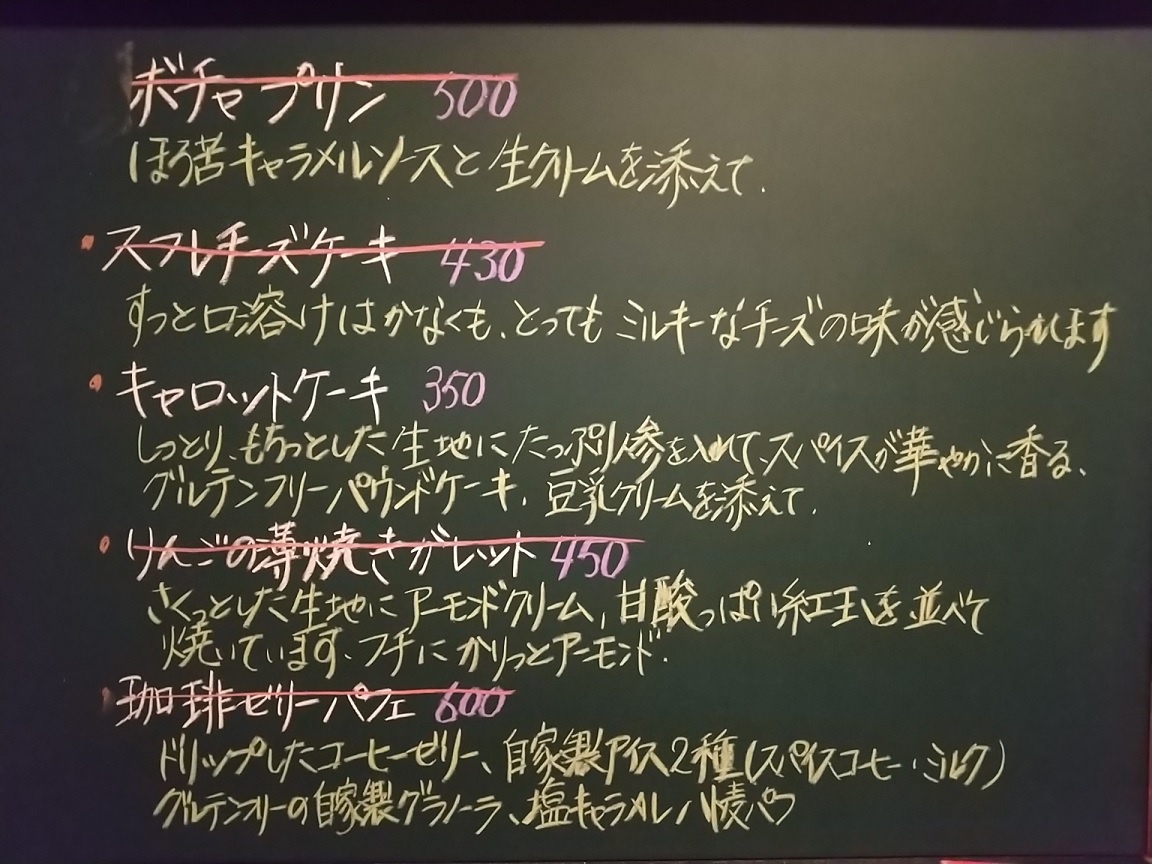 ボチャプリン 500
ほろ苦キャラメルソースと生クリームを添えて.
・スフレチーズケーキ 430
すっと口溶けはかなくも、とってもミルキーなチーズの味が感じられます
・キャロットケーキ 350
しっとり、もちっとした生地にたっぷり人参を入れて、スパイスが華やかに香る、
グルテンフリーパウンドケーキ. 豆乳クリームを添えて.
・りんごの薄焼きガレット 450
さくっとした生地にアーモンドクリーム、甘酸っぱい紅玉を並べて
焼いています、フチにかりっとアーモンド.
・珈琲ゼリーパフェ 600
ドリップしたコーヒーゼリー、自家製アイス2種(スパイスコーヒー・ミルク)
グルテンフリーの自家製グラノーラ、塩キャラメル